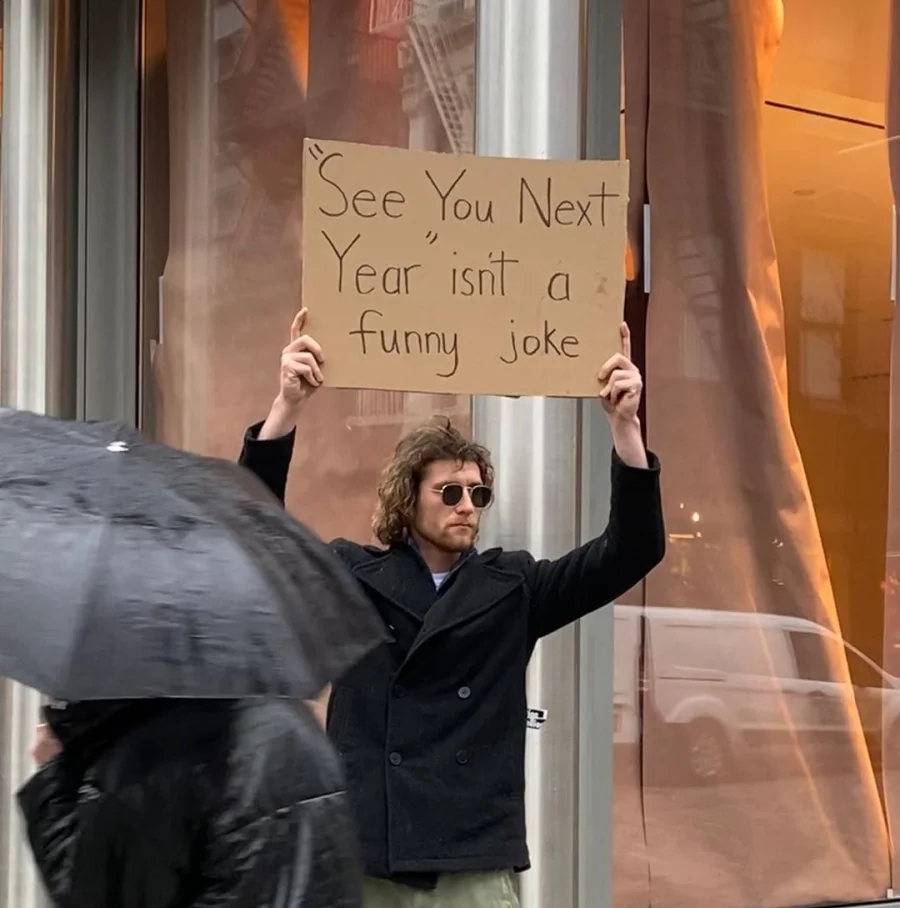 "See You Next
Year" isn't a
funny joke